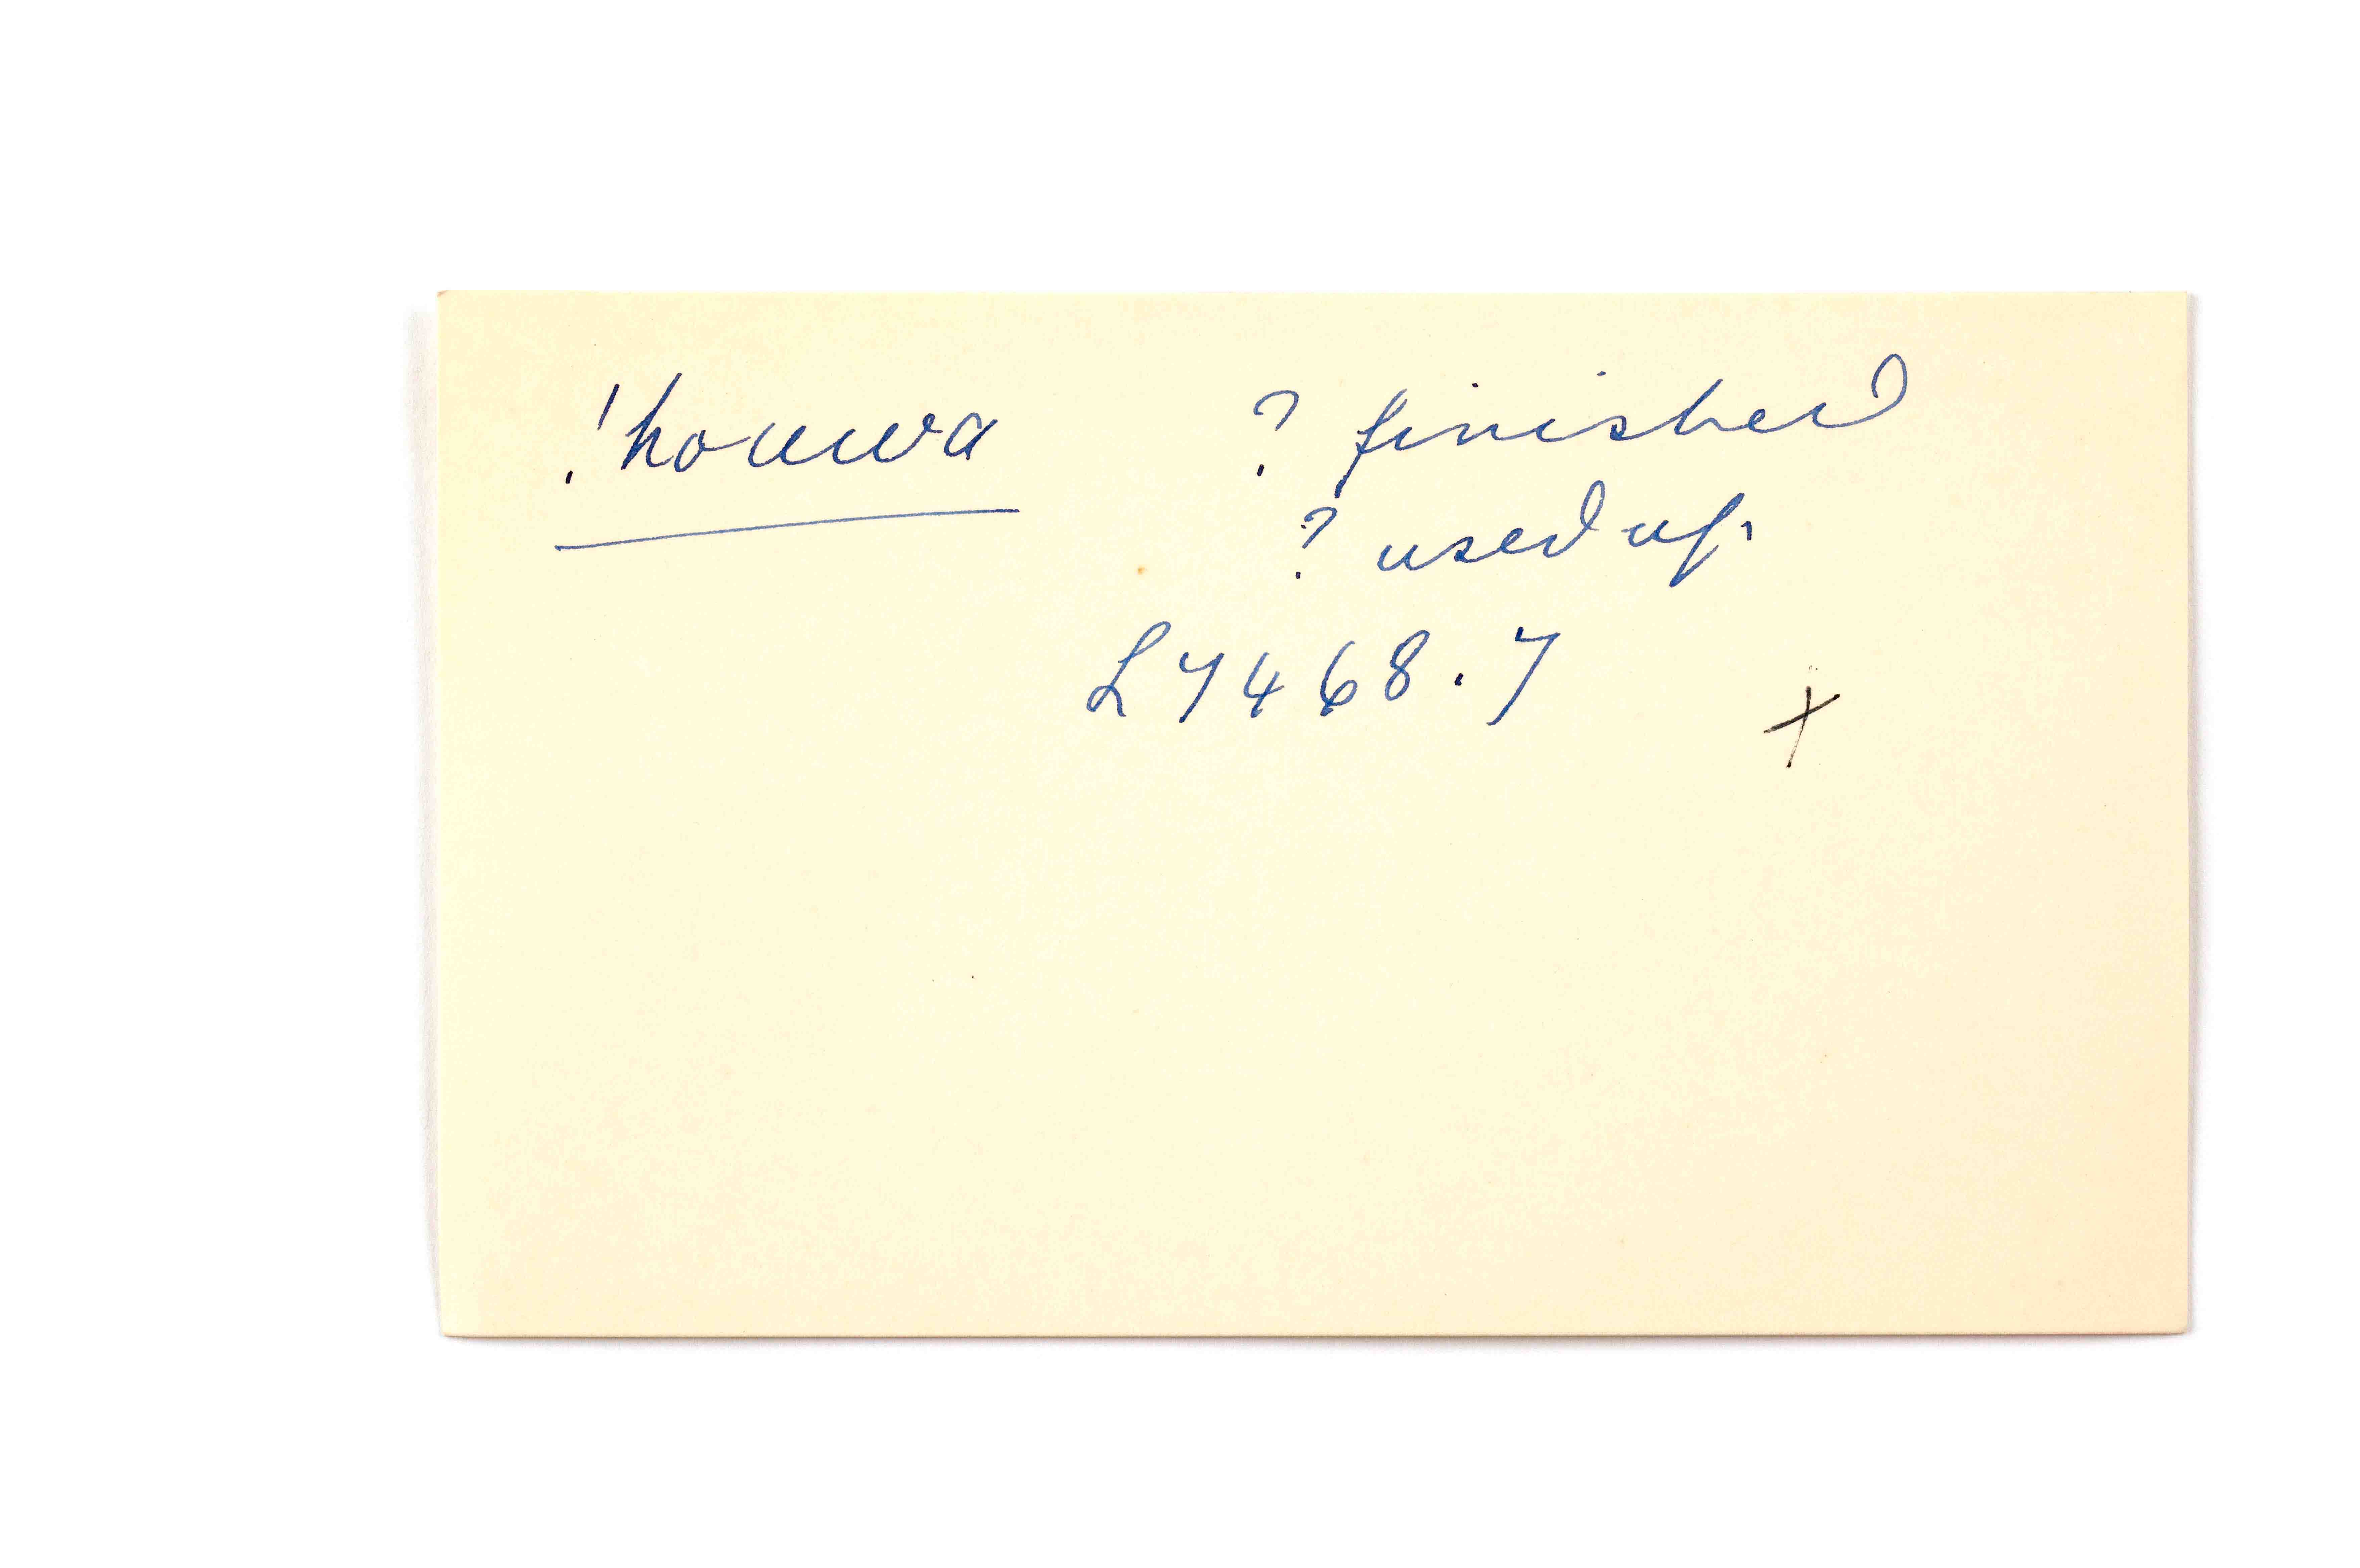 !houwa ? finished
? used up
L7468.7
x